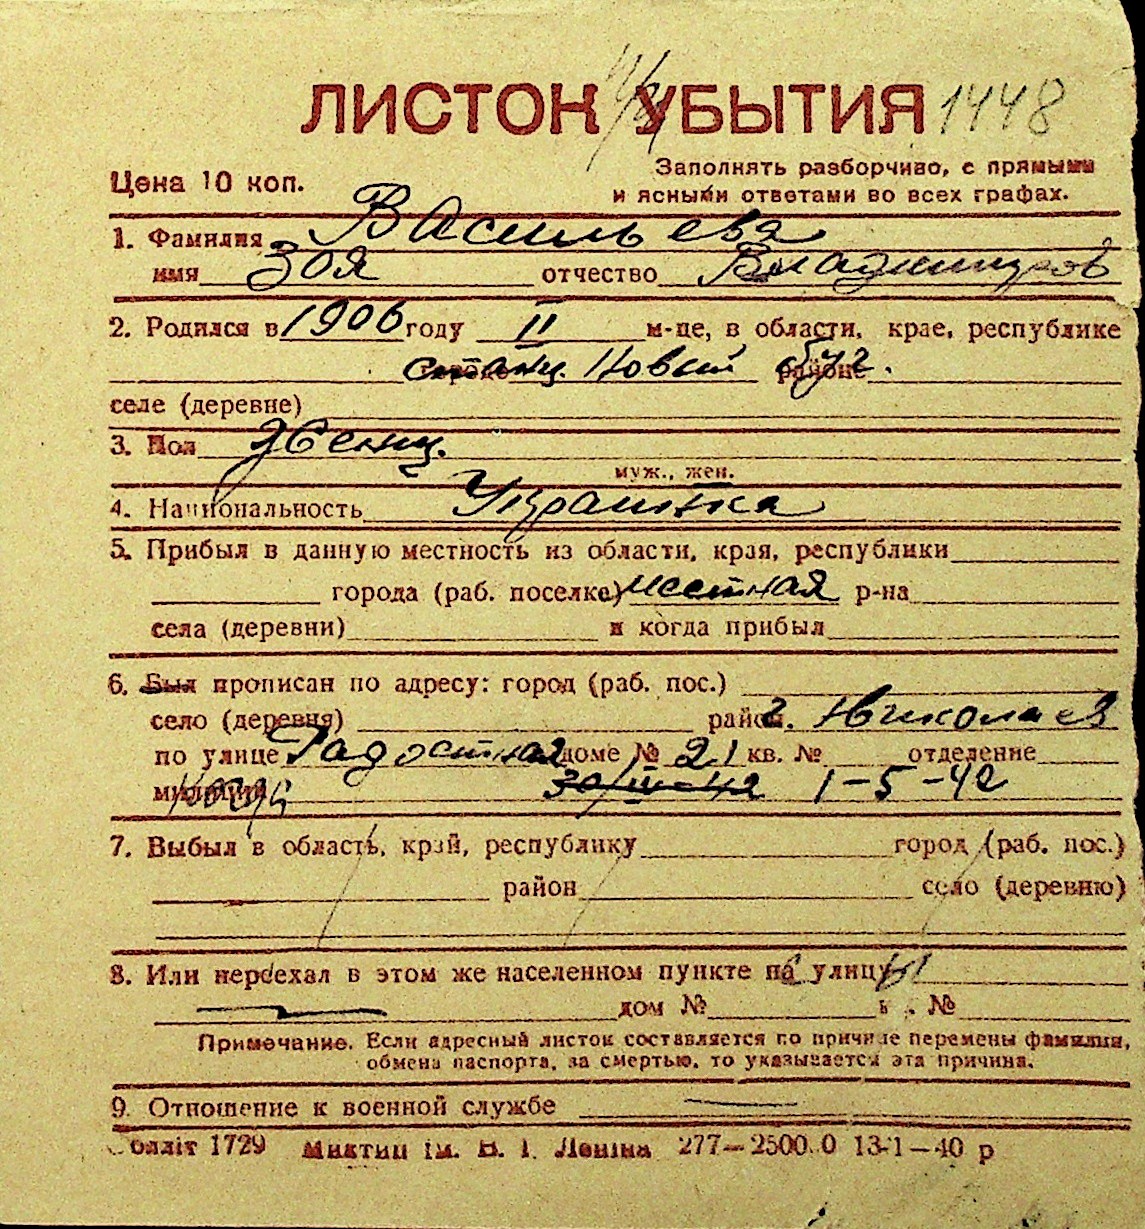 ЛИСТОК УБЫТИЯ 1448
Цена 10 коп.
Заполнять разборчиво, с прямыми
и ясными ответами во всех графах.
1. Фамилия Васильева
имя Зоя отчество Владимиров
2. Родился в 1906 году II м-це, в области, крае, республике
станц. Новый Буг.
селе (деревне)
3. Пол женщ.
муж., жен.
4. Национальность Украинка
5. Прибыл в данную местность из области, края, республики
города (раб. поселке) местная р-на
села (деревни) и когда прибыл
6. Был прописан по адресу: город (раб. пос.)
село (деревня) район г. Николаев
по улице Радостная доме № 21 кв. № отделение
милиции 30/IV-42 1-5-42
7. Выбыл в область, край, республику город (раб. пос.)
район село (деревню)
8. Или переехал в этом же населенном пункте на улицу
дом № к . №
Примечание. Если адресный листок составляется по причине перемены фамилии,
обмена паспорта, за смертью, то указывается эта причина.
9. Отношение к военной службе
олліт 1729 Миктип ім. В. І. Леніна 277—2500 0 13-1—40 р